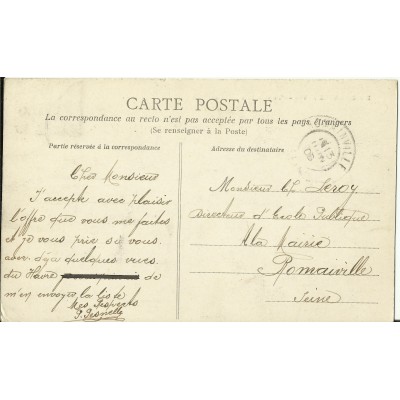 CARTE POSTALE
La correspondance au recto n'est pas acceptée par tous les pays étrangers
(Se renseigner à la Poste)
Partie réservée à la correspondance
Adresse du destinataire
Cher Monsieur
J'accepte avec plaisir
l'offre que vous me faites
et je vous prie si vous
avez déjà quelques vues
du Havre de
m'en envoyer la liste
Mes Respects
Monsieur Ch Leroy
Directeur d'Ecole Publique
à la Mairie
Romainville
Seine